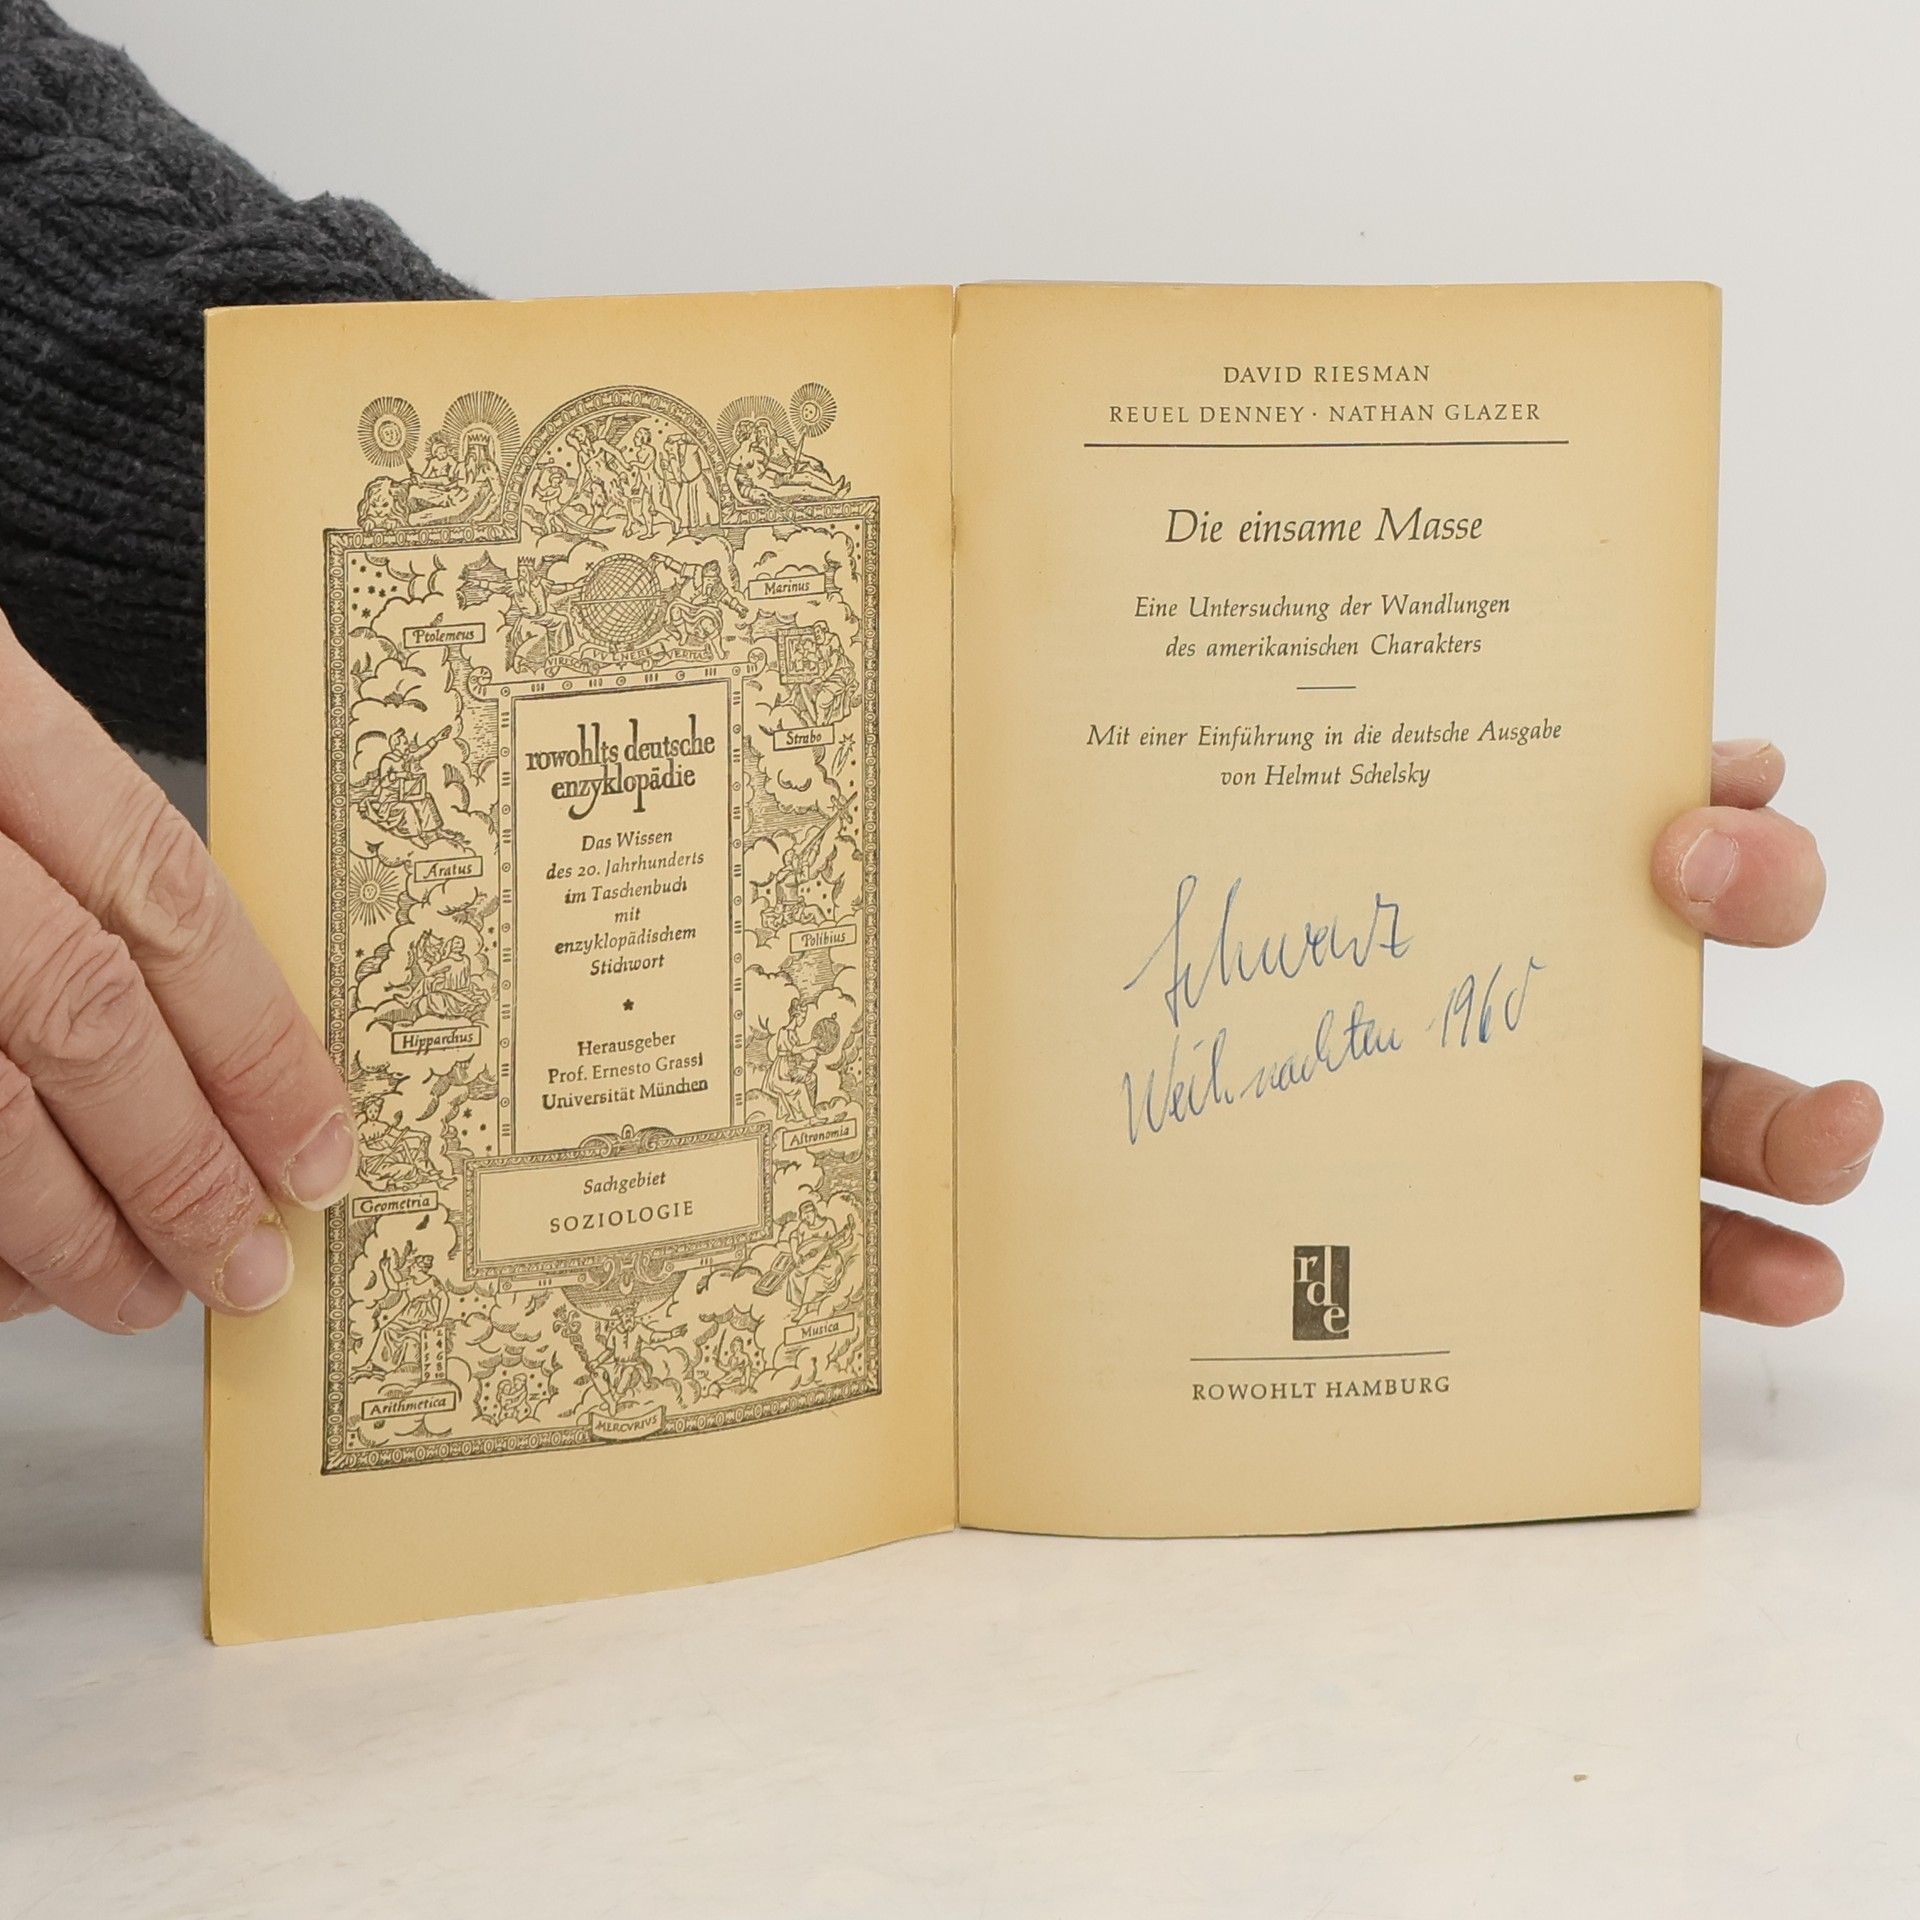 Marinus
Ptolemeus
VIRESCIT VVLNERE VERITAS
Strabo
rowohlts deutsche
enzyklopädie
Das Wissen
des 20. Jahrhunderts
im Taschenbuch
mit
enzyklopädischem
Stichwort
*
Herausgeber
Prof. Ernesto Grassi
Universität München
Aratus
Polibius
Hipparchus
Astronomia
Geometria
Sachgebiet
SOZIOLOGIE
Musica
Arithmetica
MERCVRIVS
DAVID RIESMAN
REUEL DENNEY · NATHAN GLAZER
Die einsame Masse
Eine Untersuchung der Wandlungen
des amerikanischen Charakters
Mit einer Einführung in die deutsche Ausgabe
von Helmut Schelsky
Schwarz
Weihnachten 1960
rde
ROWOHLT HAMBURG